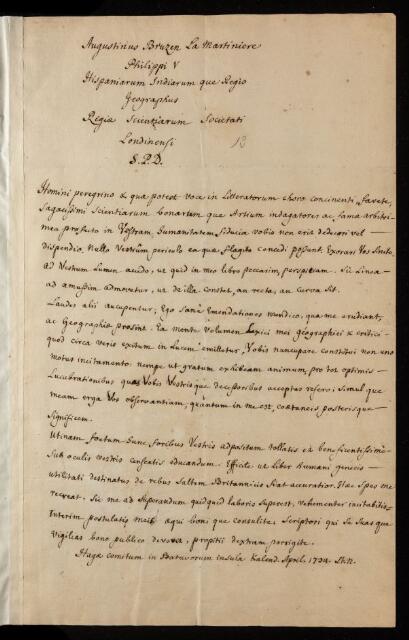 Augustinus Bruzen La Martiniere
Philippi V
Hispaniarum Indiarum que Regio
Geographus
Regiæ Scientiarum Societati
Londinensi
13
S.P.D.
Homini peregrino & qua potest voce in Litteratorum choro concinenti favete,
Sagacissimi Scientiarum bonarum que Artium indagatores ac fama arbitri.
mea profecto in Vestram humanitatem fiducia vobis non erit dedecori vel
dispendio. Nullo Vestrûm periculo ea quæ flagito concedi possunt. Exorari Vos sinite.
Ad Vestrum Lumen accedo, ut quid in meo libro peccarim, perspiciam. Sic Linea
ad amussim admovetur, ut de illa constet, an recta, an curva sit.
Laudes alii aucupentur; Ego Sanè Emendationes mendico, quæ me erudiant,
ac Geographiæ prosint. Ea mente volumen Lexici mei geographici & critici
quod circa veris exitum in Lucem emittetur, Vobis nuncupare constitui non uno
motus incitamento. nempe ut gratum exhibeam animum, pro tot optimis
Lucubrationibus quas Vobis Vestrisque decessoribus acceptas refero; simul que
meam erga Vos observantiam, quantum in me est, coætaneis posterisque
Significem.
Utinam foetum hunc foribus Vestris adpositum tollatis et beneficentissimè
Sub oculis vestris censeatis educandum. Efficite ut liber humani generis
utilitati destinatus de rebus saltem Britannicis fiat accuratior. Hæc Spes me
recreat. Sic me ad Superandum quidquid laboris superest, vehementer incitabitis.
Interim postulatis meis æqui boni que consulite. Scriptori qui Se Suas que
Vigilias bono publico devovit, propitii dextram porrigite.
Hagæ comitum in Batavorum insula Kalend. April. 1734. St. N.